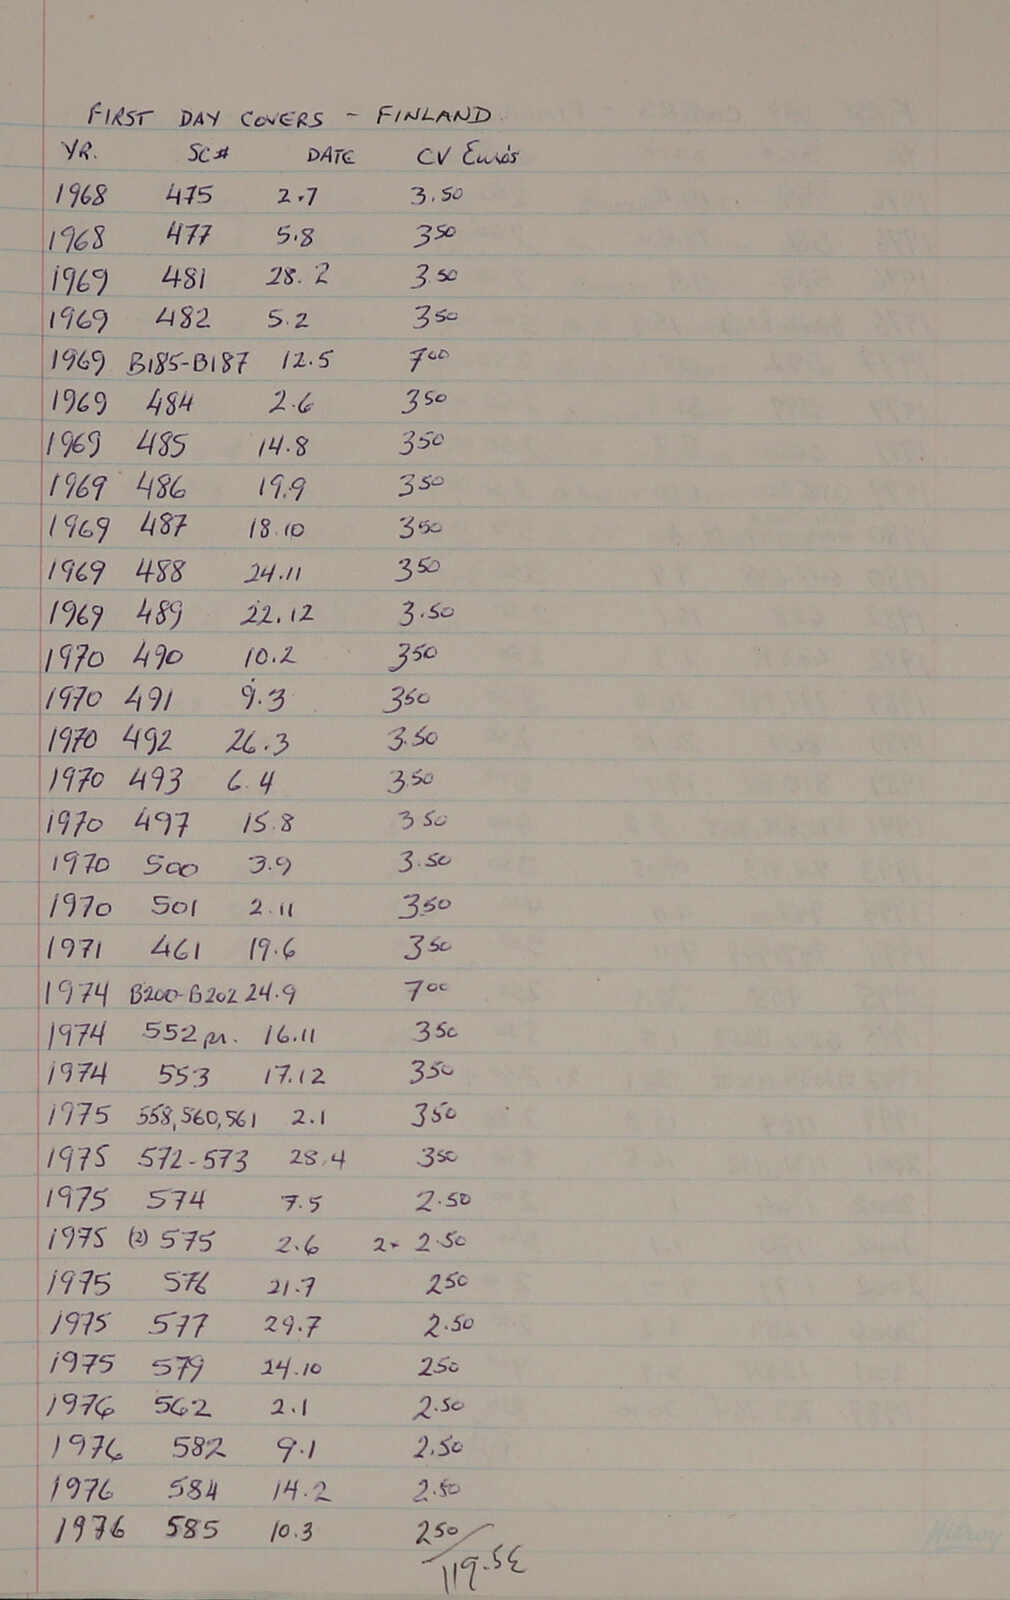 FIRST DAY COVERS - FINLAND
YR. SC# DATE CV Euro's
1968 475 2.7 3.50
1968 477 5.8 350
1969 481 28.2 3.50
1969 482 5.2 350
1969 B185-B187 12.5 700
1969 484 2.6 350
1969 485 14.8 350
1969 486 19.9 350
1969 487 18.10 350
1969 488 24.11 350
1969 489 22.12 3.50
1970 490 10.2 350
1970 491 9.3 350
1970 492 26.3 3.50
1970 493 6.4 3.50
1970 497 15.8 350
1970 500 3.9 3.50
1970 501 2.11 350
1971 461 19.6 350
1974 B200-B202 24.9 700
1974 552 pr. 16.11 350
1974 553 17.12 350
1975 558,560,561 2.1 350
1975 572-573 28.4 350
1975 574 7.5 2.50
1975 (2) 575 2.6 2x 2.50
1975 576 21.7 250
1975 577 29.7 2.50
1975 579 24.10 250
1976 562 2.1 2.50
1976 582 9.1 2.50
1976 584 14.2 2.50
1976 585 10.3 250
119.5€